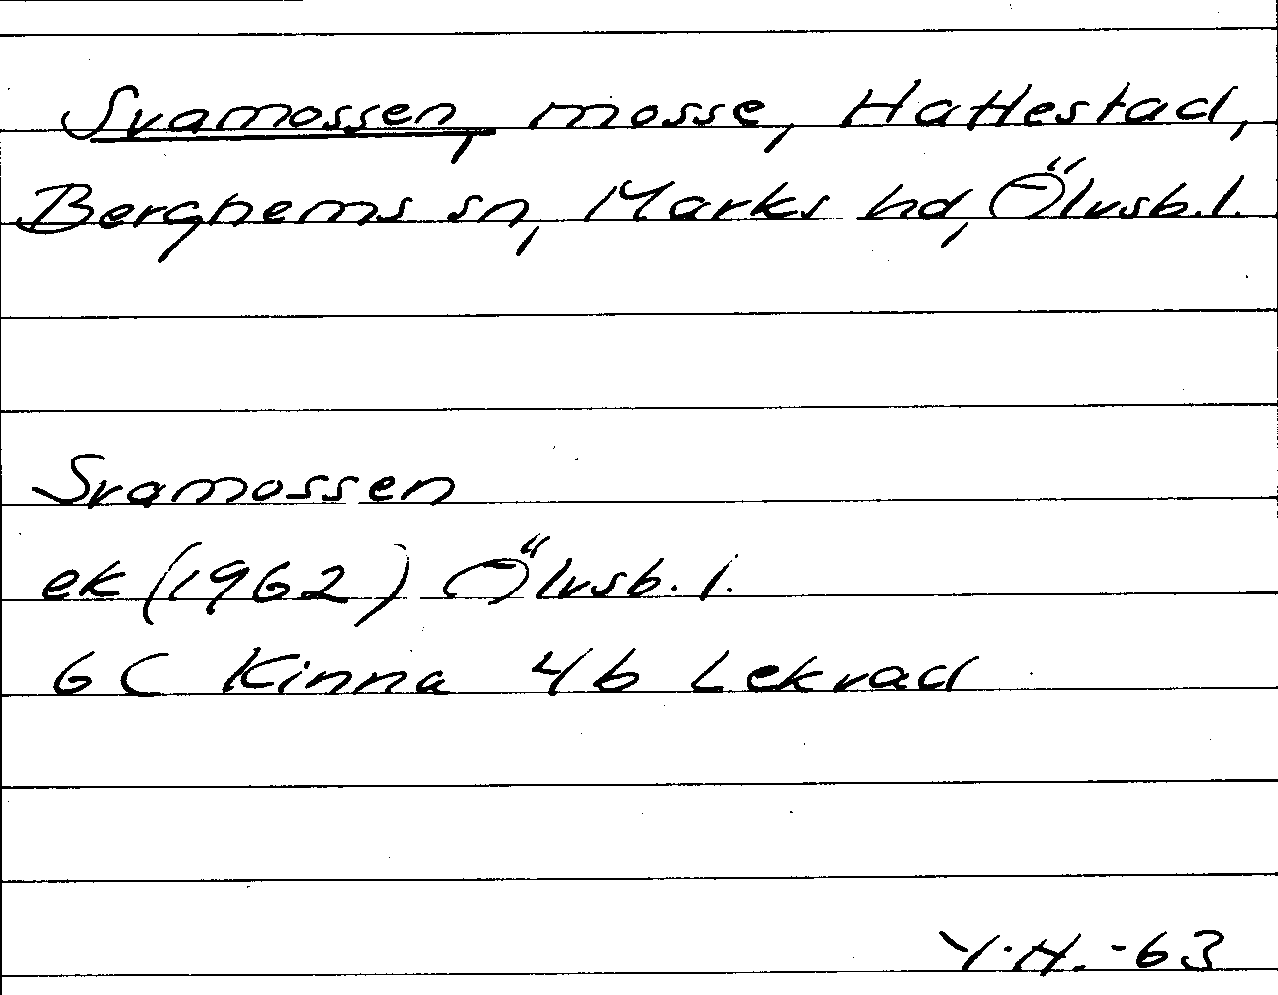 Svamossen, mosse, Hattestad,
Berghems sn, Marks hd, Älvsb.l.
Svamossen
ek (1962) Älvsb.l.
6C Kinna 4b Lekvad
Y.H. -63